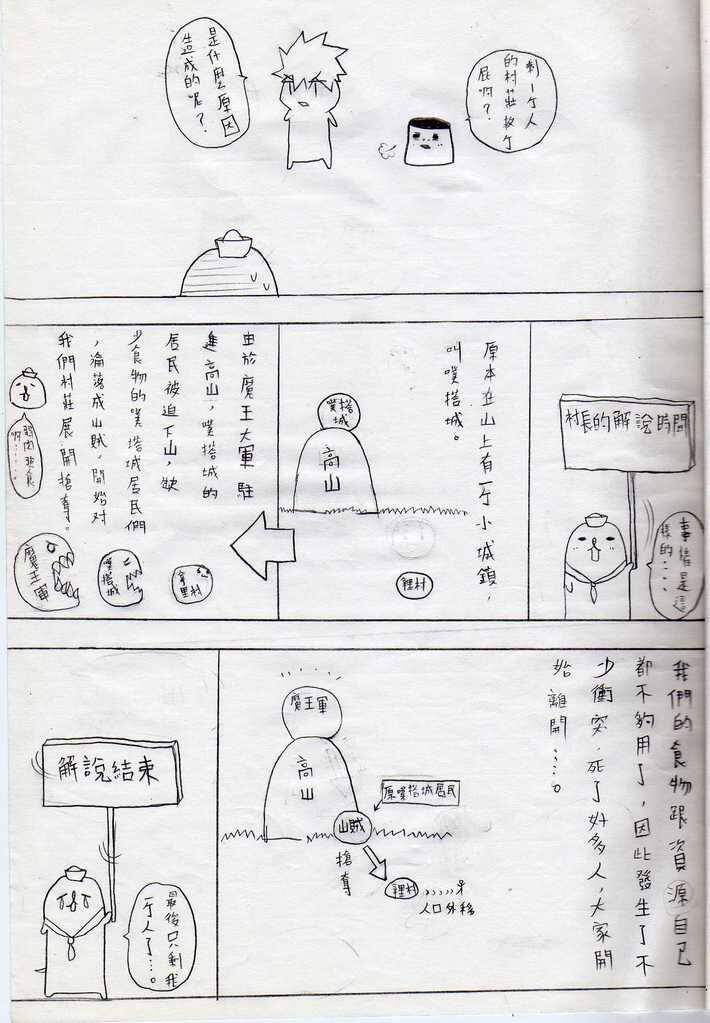 剩一个人
的村莊放个
屁啊？
是什麼原因
造成的呢？
村長的解說時間
事情是這
樣的....
原本在山上有一个小城鎮，
叫噗搭城。
噗搭
城
高山
裡村
由於魔王大軍駐
進高山，噗搭城的
居民被迫下山，缺
少食物的噗搭城居民們
，淪落成山賊，開始對
我們村莊展開搶奪。
弱肉強食
啊.....。
魔王軍
噗搭
城
裡村
我們的食物跟資源自己
都不夠用了，因此發生了不
少衝突，死了好多人，大家開
始離開....。
魔王軍
高山
原噗搭城居民
山賊
搶奪
裡村
人口外移
解說結束
最後只剩我
一个人了...。